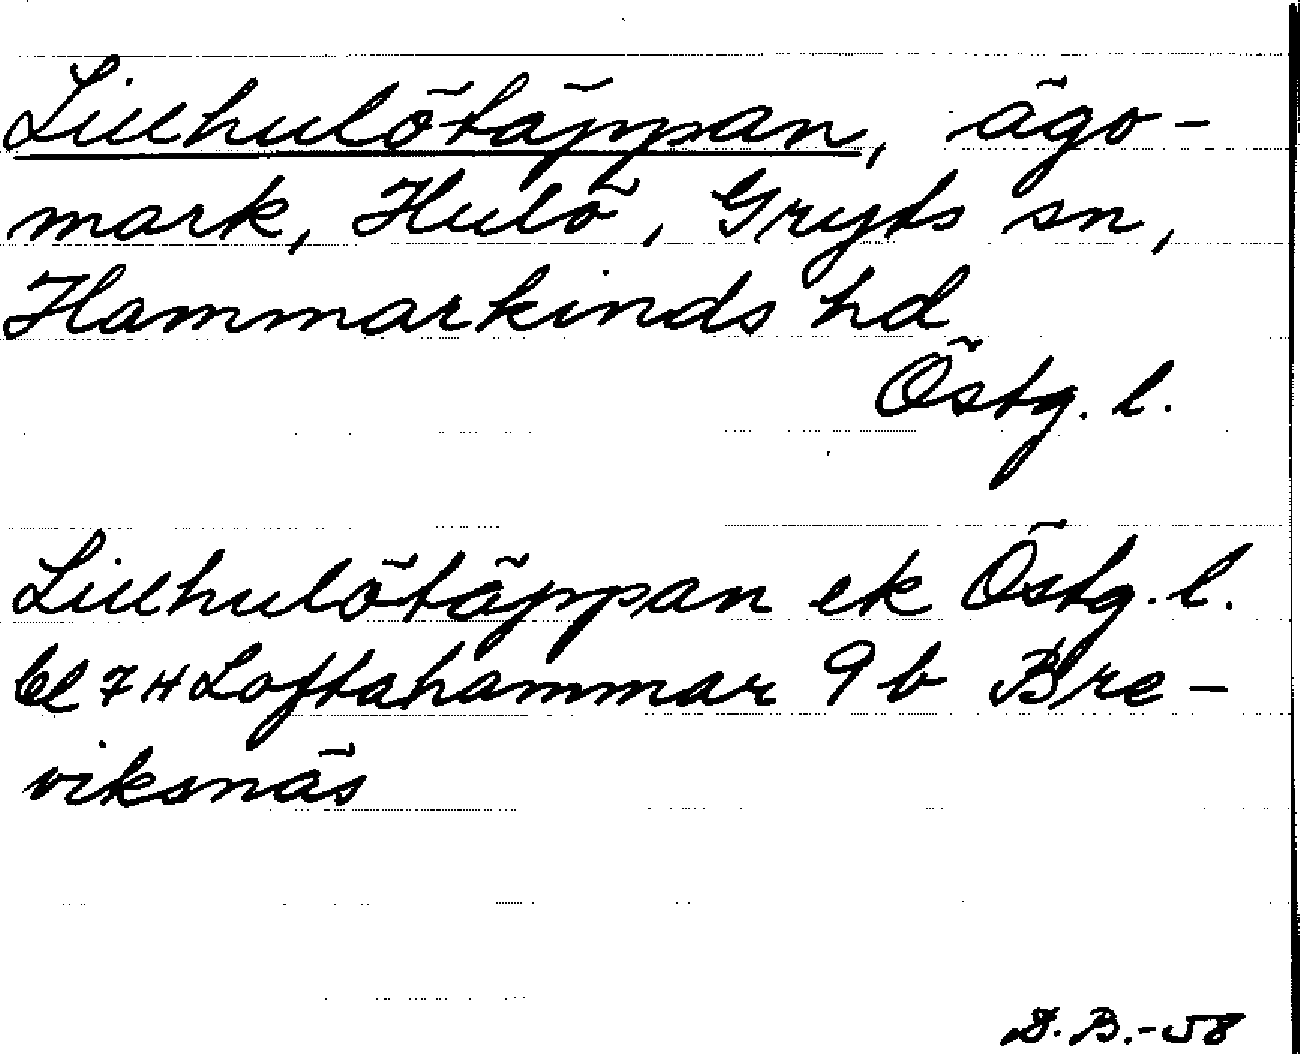 Lillhulötäppan, ägo-
mark, Hulö, Gryts sn,
Hammarkinds hd
Östg. l.
Lillhulötäppan ek Östg. l.
bl 7H Loftahammar 9b Bre-
viksnäs
D.B.-58